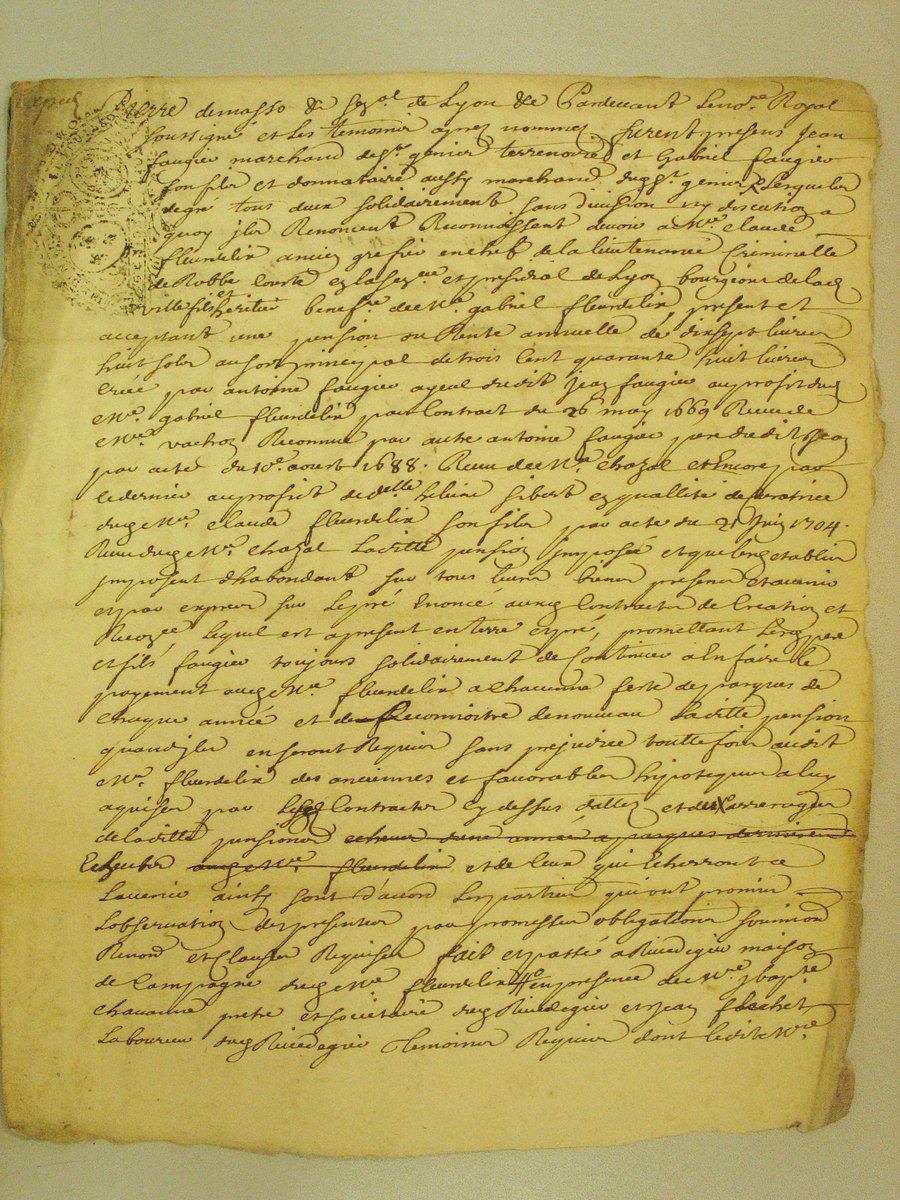 Pierre demasso & sen.al de Lyon &c Pardevant Le no.re Royal
soussigné et Les temoins apres nommez furent presens Jean
faugier marchand de s.t genier terrenoire et Gabriel faugier
son fils et donnataire aussy marchand dud s.t genier Lesquels
de gré tous deux solidairement sans division ny discution a
quoy ils Renoncent Reconnoissent devoir a M.re Claude
fleurdelix ancien greffier en chef de la lieutenance Criminelle
de Robbe Courte en la sen.ée et presidial de Lyon bourgeois de lad
ville fils et heritier benef.re de M.re gabriel fleurdelix present et
acceptant une pension ou Rente annuelle de dixsept livres
huit sols au sort principal de trois Cent quarante huit livres
Créée par antoine faugier ayeul dudit Jean faugier au profit dud
M.re gabriel fleurdelix par Contract du 26 may 1669 Receu de
M.re vachon Reconnue par autre antoine faugier pere dudit Jean
par acte du 10.e aoust 1688. Receu de M.re Chazal et Encore par
le dernier au profit de d.elle gibert en quallité de Curatrice
dud M.re Claude fleurdelix son fils par acte du 21 Juin 1704.
Receu dud M.re Chazal Laditte pension imposée et que led etablis
imposent d'habondant sur tous leurs biens presens et avenir
et par exprés sur Le pré Enoncé auxd Contracts de Creation et
Lequel est a present en terre et pré, promettant Lesd pere
et fils faugier toujours solidairement de Continuer a En faire le
payement aud M.re fleurdelix a Chacunne feste de pasques de
Chaque année et de Reconnoistre denouveau Laditte pension
quand ils en seront Requis sans prejudice touttefois audit
M.re fleurdelix des anciennes et favorables hipoteques a luy
aquises par Lesd Contracts cy dessus dattez et des arrerages
de laditte pension echeus d'une année a pasques dernieres
Echeubs aud M.re fleurdelix et de Ceux qui Echerront Ce
ainsy sont d'acord Les parties qui ont promis
L'observation des presentes par promesses obligations soumions
Renons et Clauses Requises fait et passé a Rivedegier maison
de Campagne dud M.re fleurdelix en presence de M.re J bap.te
Chavanne pretre et sociétaire dud Rivedegier et Jean flachet
Laboureur dud Rivedegier Temoins Requis dont ledit M.re